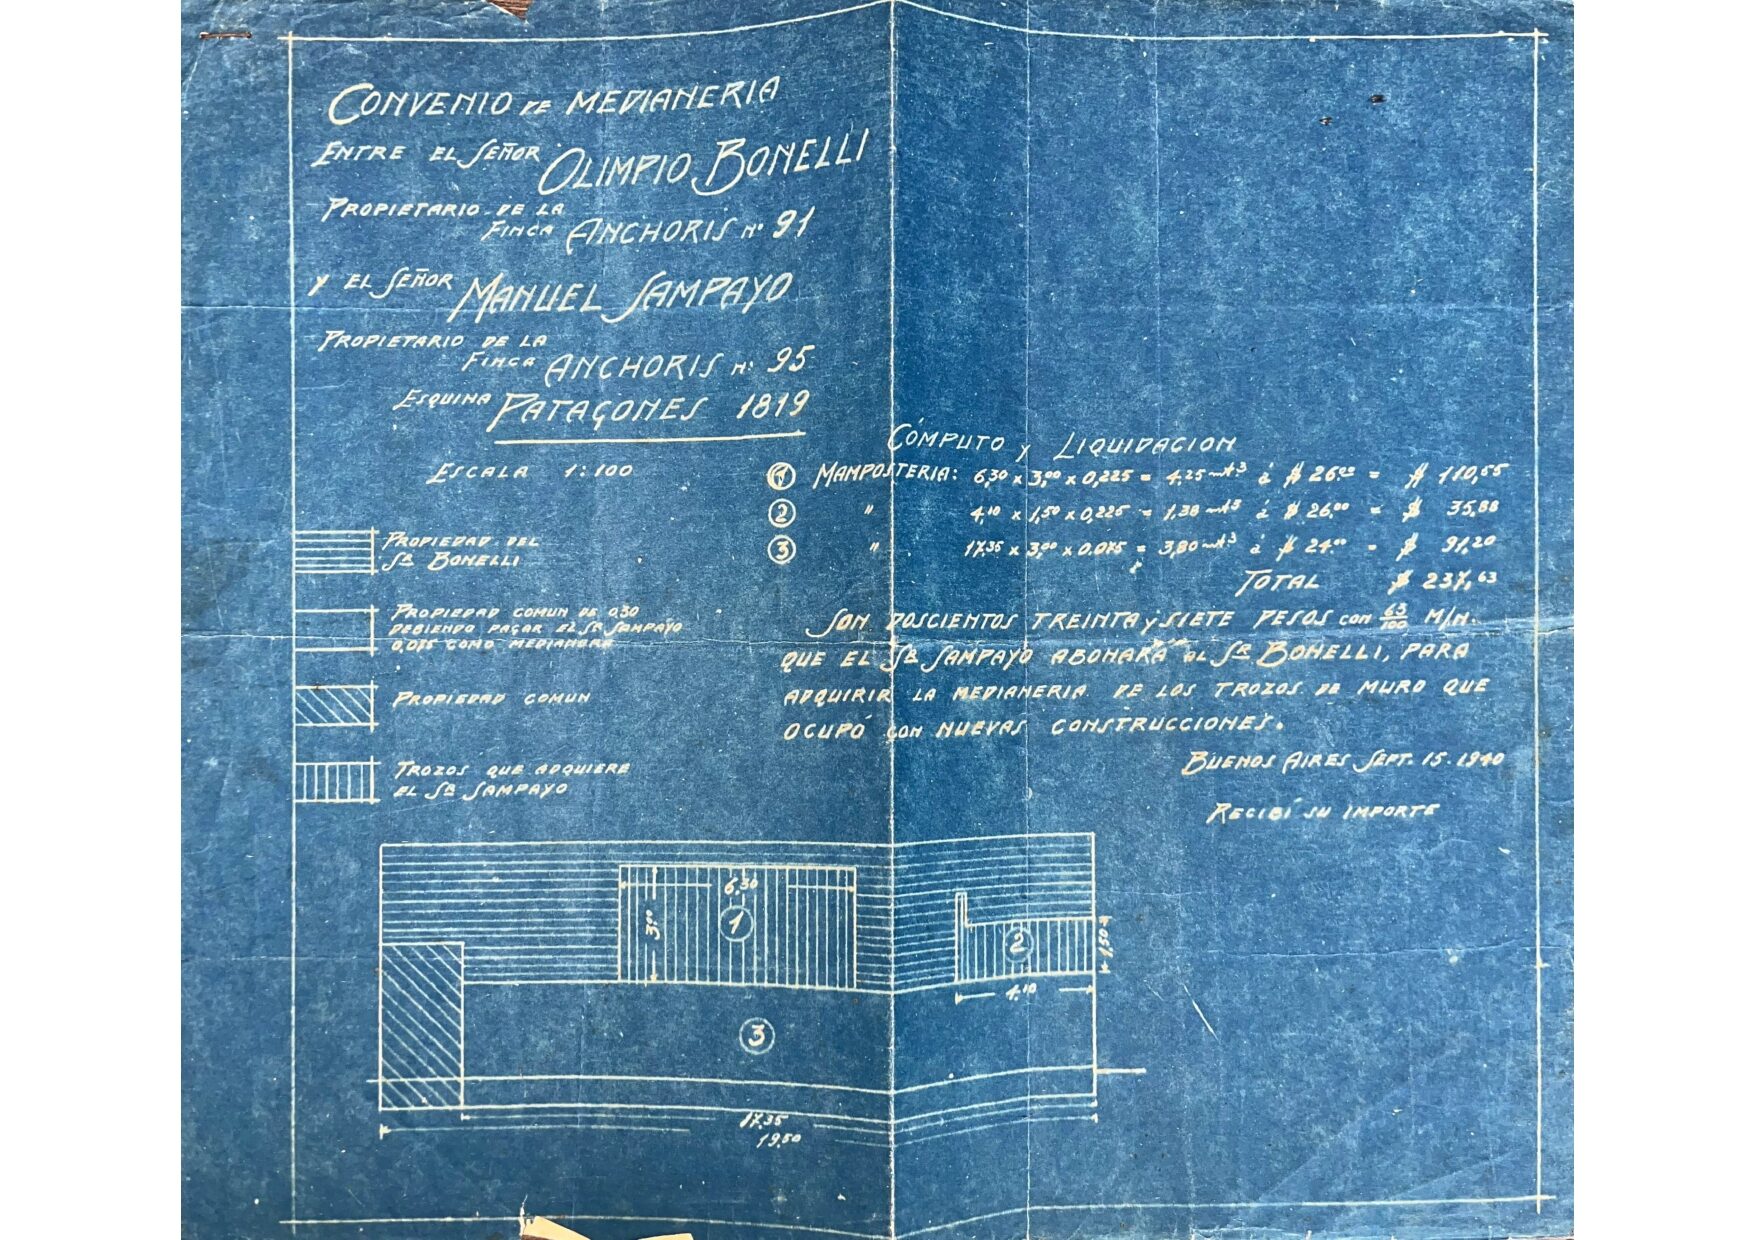 CONVENIO DE MEDIANERIA
ENTRE EL SEÑOR OLIMPIO BONELLI
PROPIETARIO DE LA
FINCA ANCHORIS Nº 91
Y EL SEÑOR MANUEL SAMPAYO
PROPIETARIO DE LA
FINCA ANCHORIS Nº 95
ESQUINA PATAGONES 1819
ESCALA 1:100
PROPIEDAD DEL
Sᴿ BONELLI
PROPIEDAD COMUN DE 0,30
DEBIENDO PAGAR EL Sᴿ SAMPAYO
0,075 COMO MEDIANERA
PROPIEDAD COMUN
TROZOS QUE ADQUIERE
EL Sᴿ SAMPAYO
CÓMPUTO Y LIQUIDACION
① MAMPOSTERIA: 6,30 x 3,00 x 0,225 = 4,25 mt3 á $ 26,00 = $ 110,55
② " 4,10 x 1,50 x 0,225 = 1,38 mt3 á $ 26,00 = $ 35,88
③ " 17,35 x 3,00 x 0.075 = 3,80 mt3 á $ 24,00 = $ 91,20
TOTAL $ 237,63
SON DOSCIENTOS TREINTA y SIETE PESOS CON 63/100 M/N.
QUE EL Sᴿ SAMPAYO ABONARÁ AL Sᴿ BONELLI, PARA
ADQUIRIR LA MEDIANERIA DE LOS TROZOS DE MURO QUE
OCUPÓ CON NUEVAS CONSTRUCCIONES.
BUENOS AIRES SEPT. 15. 1940
RECIBÍ SU IMPORTE
6,30
3,00
1
2
1,50
4,10
3
17,35
19,50